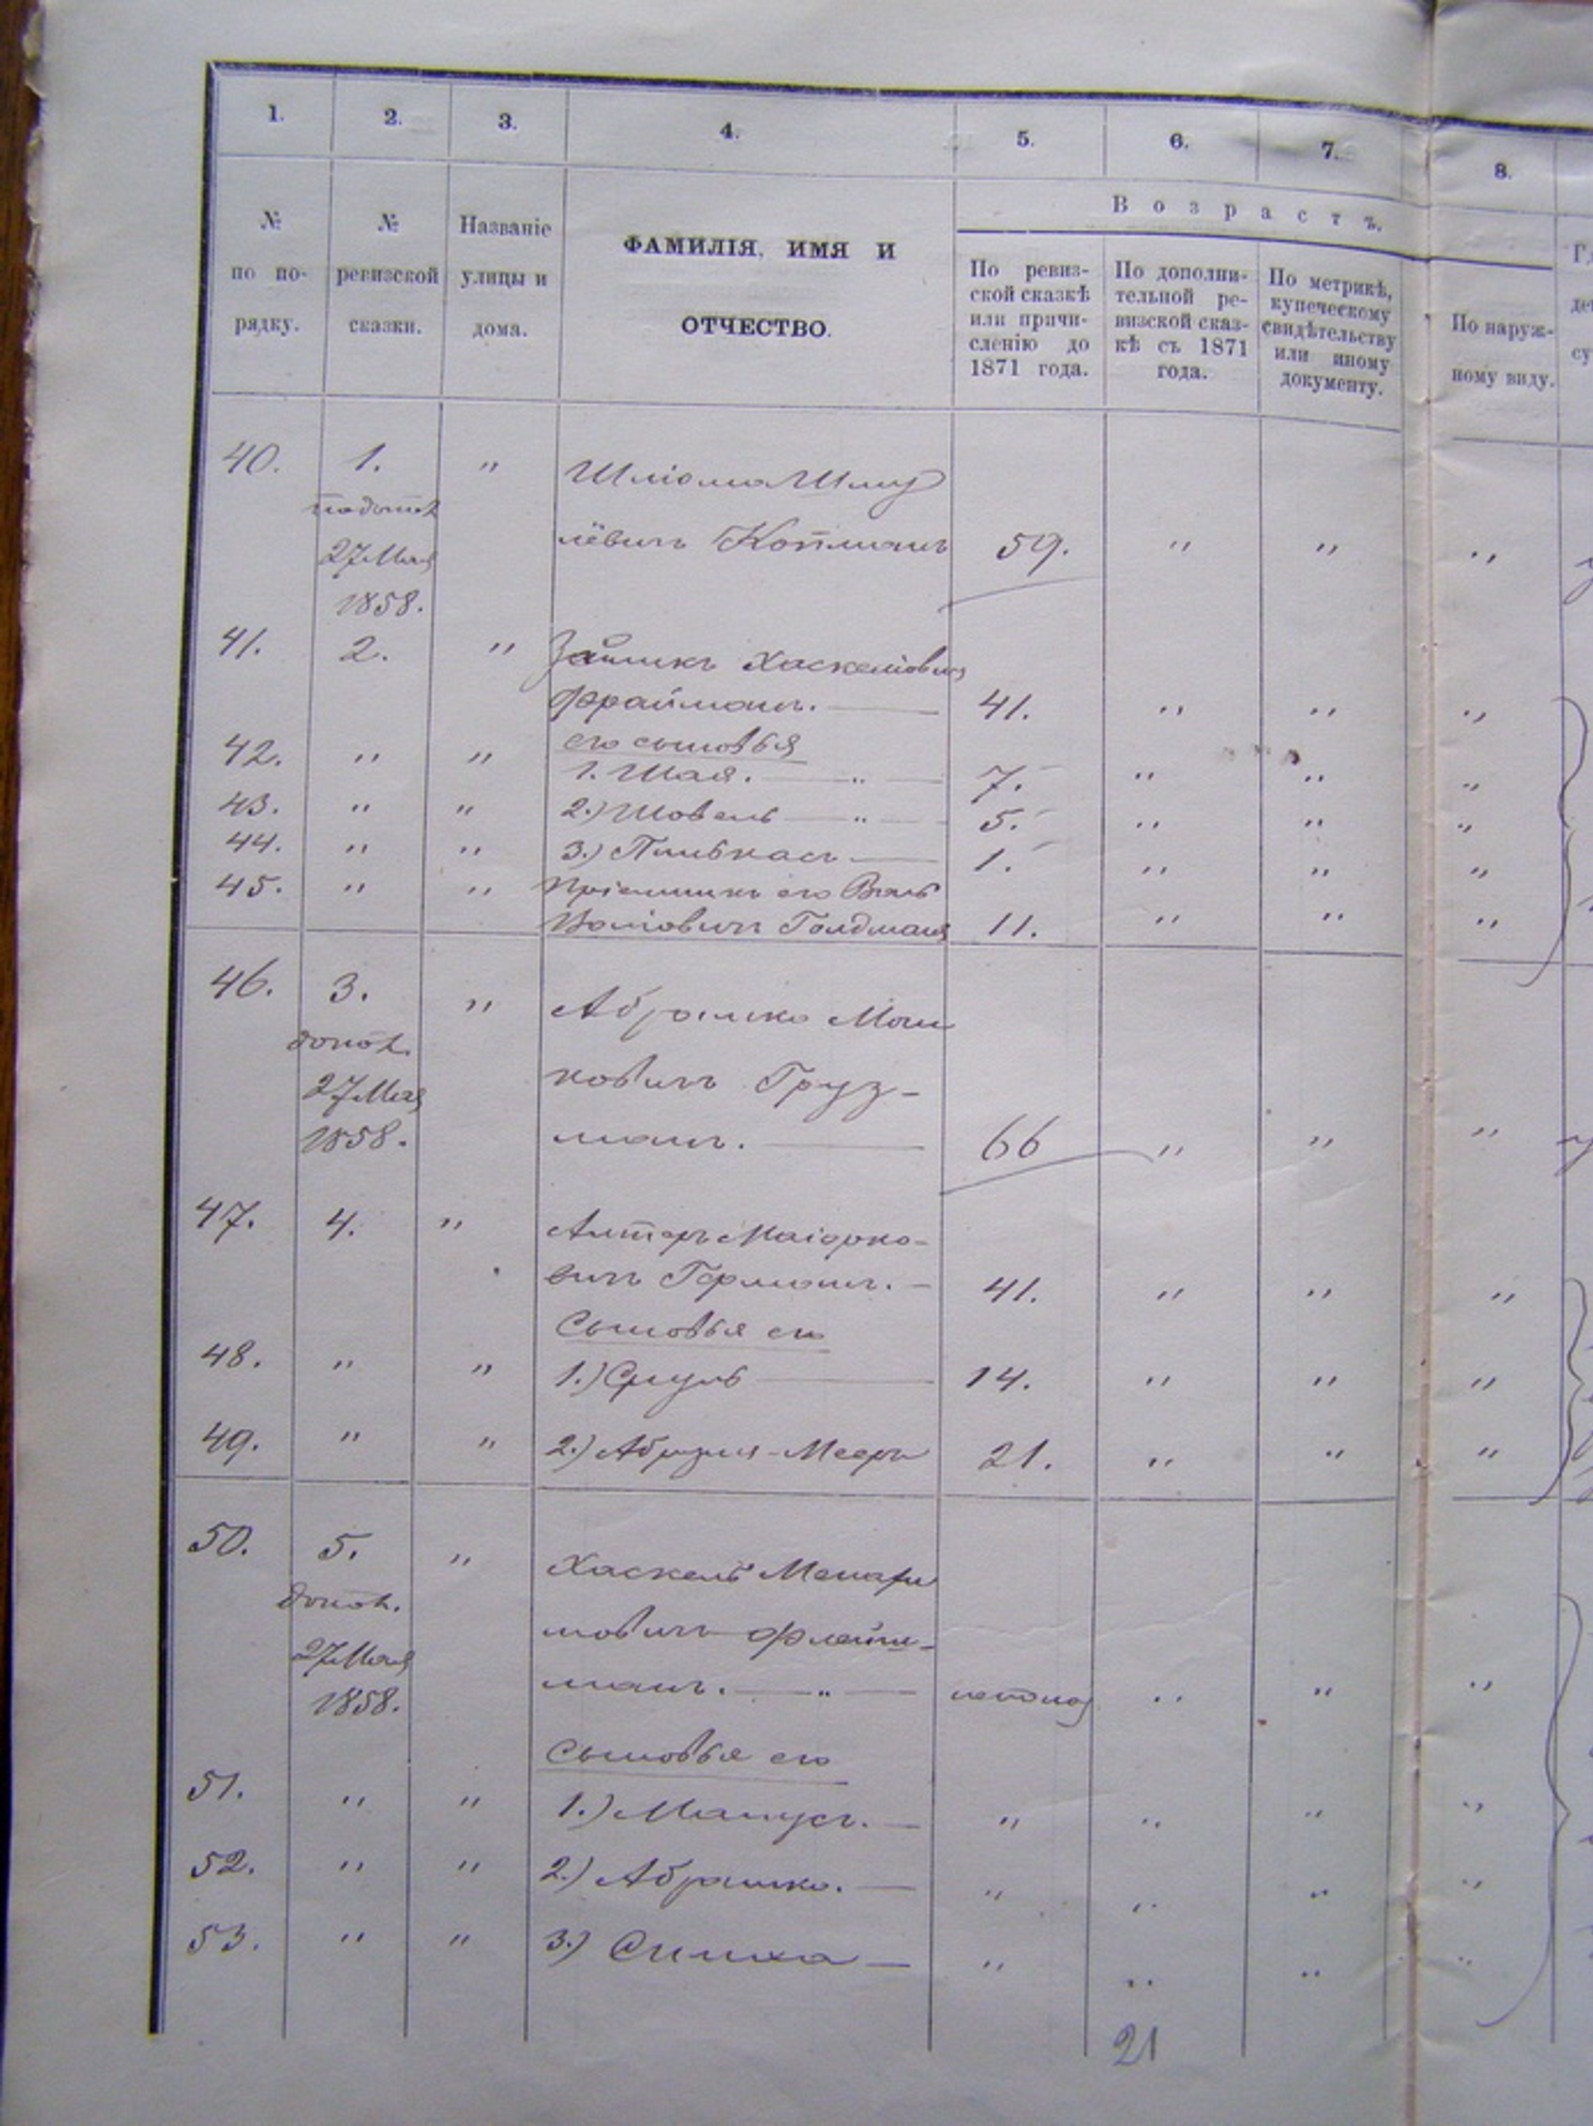 1. 2. 3. 4. 5. 6. 7. 8.
№ по по-рядку.
№ ревизской сказки.
Названіе улицы и дома.
ФАМИЛІЯ, ИМЯ И
ОТЧЕСТВО.
Возрастъ.
По ревиз-
ской сказкѣ
или причи-
сленію до
1871 года.
По дополни-
тельной ре-
визской сказ-
кѣ съ 1871
года.
По метрикѣ,
купеческому
свидѣтельству
или иному
документу.
По наруж-
ному виду.
40. 1. " Шліома Шму
27 Мая лёвичъ Копманъ 59. " " "
1858.
41. 2. " Зайликъ Хаскеліович
Фрайманъ. — 41. " " "
его сыновья
42. " " 1. Шая. — " — 7. " " "
43. " " 2.) Шовель — " — 5. " " "
44. " " 3.) Пинькасъ — 1. " " "
45. " " Пріемникъ его
Голдманъ 11. " " "
46. 3. " Абрамко Мош
27 Мая ковичъ Груз-
1858. манъ. — 66 " " "
47. 4. " Алтеръ Маіорко-
вичъ Германъ. — 41. " " "
Сыновья его
48. " " 1.) Сруль — 14. " " "
49. " " 2.) -Мееръ 21. " " "
50. 5. " Хаскель
27 Мая новичъ Флейш-
1858. манъ. — " — " " "
Сыновья его
51. " " 1.) Манусъ. — " " " "
52. " " 2.) Абрамко. — " " " "
53. " " 3.) Симха — " " " "
21